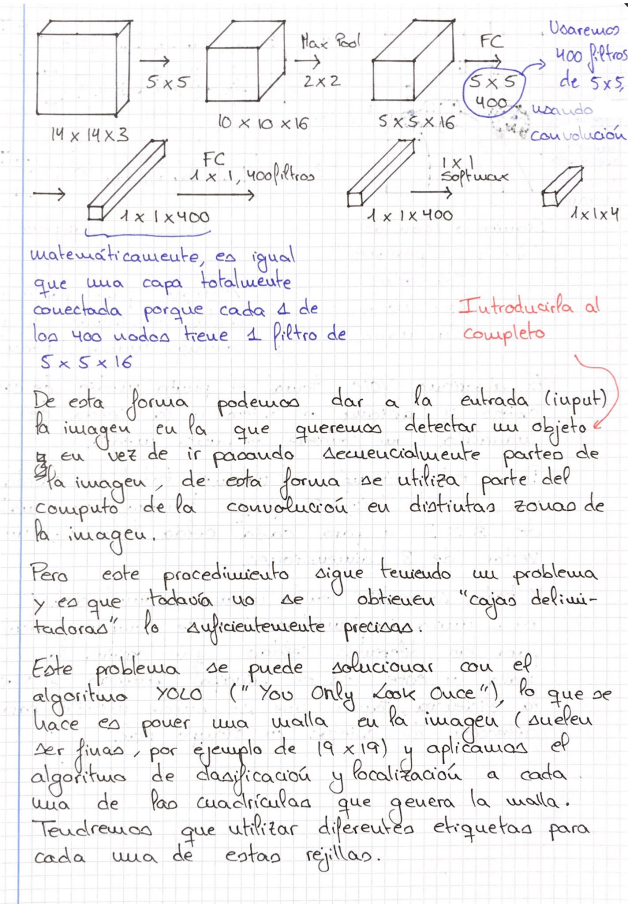 Max Pool
FC
Usaremos
400 filtros
de 5x5,
usando
convolución
5 x 5
2 x 2
5 x 5
400
14 x 14 x 3
10 x 10 x 16
5 x 5 x 16
FC
1 x 1, 400 filtros
1 x 1
Softmax
1 x 1 x 400
1 x 1 x 400
1x1x4
matemáticamente, es igual
que una capa totalmente
conectada porque cada 1 de
los 400 nodos tiene 1 filtro de
5 x 5 x 16
Introducirla al
completo
De esta forma podemos dar a la entrada (input)
la imagen en la que queremos detectar un objeto
en vez de ir pasando secuencialmente partes de
la imagen, de esta forma se utiliza parte del
computo de la convolución en distintas zonas de
la imagen.
Pero este procedimiento sigue teniendo un problema
y es que todavía no se obtienen "cajas delimi-
tadoras" lo suficientemente precisas.
Este problema se puede solucionar con el
algoritmo YOLO ("You Only Look Once"), lo que se
hace es poner una malla en la imagen (suelen
ser finas, por ejemplo de 19 x 19) y aplicamos el
algoritmo de clasificación y localización a cada
una de las cuadrículas que genera la malla.
Tendremos que utilizar diferentes etiquetas para
cada una de estas rejillas.